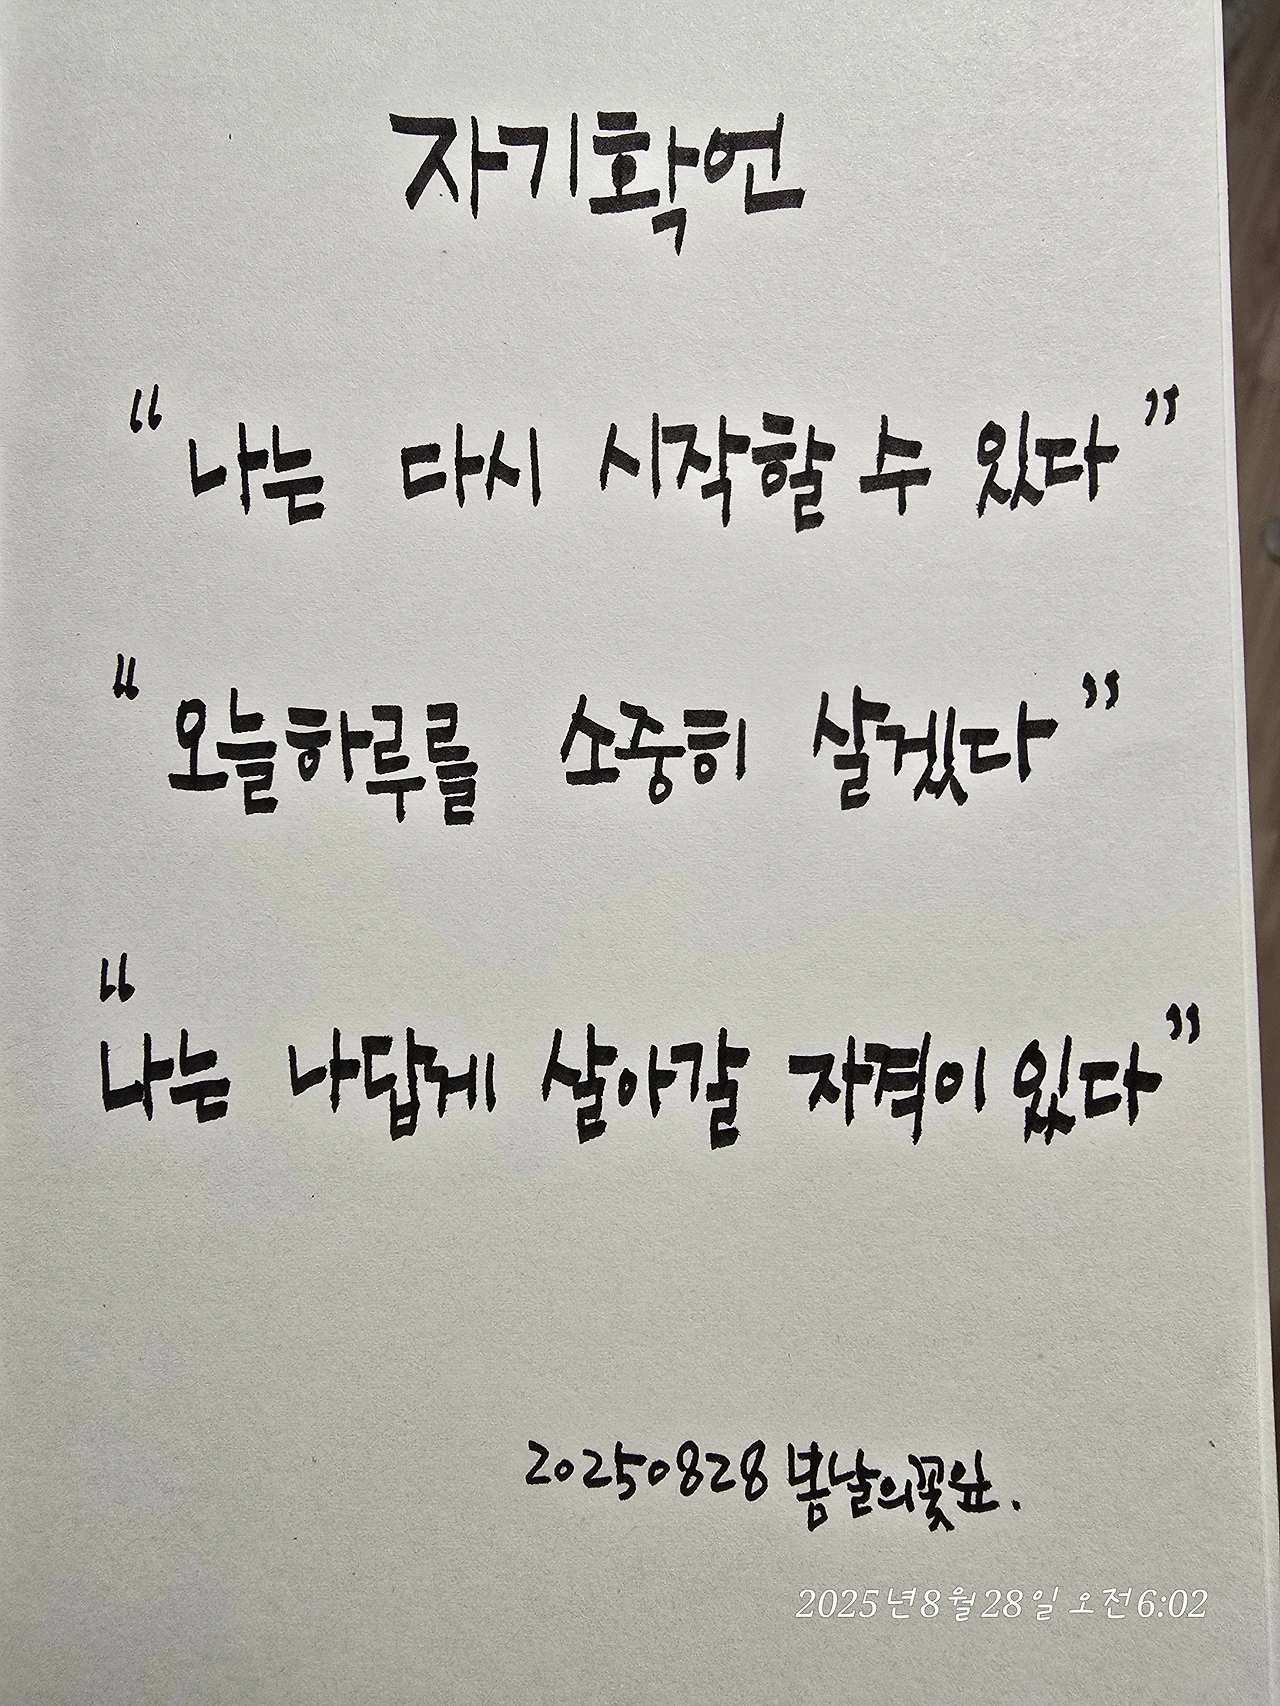 자기확언
“나는 다시 시작할 수 있다”
“오늘하루를 소중히 살겠다”
“나는 나답게 살아갈 자격이 있다”
20250828 봄날의꽃잎.
2025년 8월 28일 오전 6:02